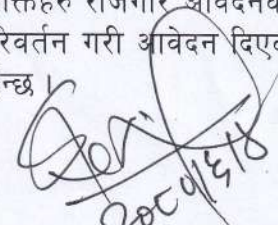 क्तिहरु रोजगार आवेदनव
रिवर्तन गरी आवेदन दिएव
न्छ।
२०८०।६।४